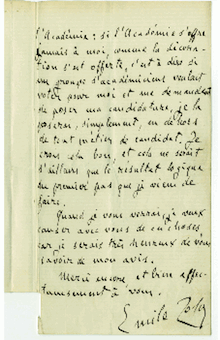 l'Académie : si l'Académie s'offre
jamais à moi, comme la décora-
tion s'est offerte, c'est à dire si
un groupe d'académiciens voulait
voter pour moi et me demandait
de poser ma candidature, je la
poserais, simplement, en dehors
de tout métier de candidat. Je
crois cela bon, et cela ne serait
d'ailleurs que le résultat logique
du premier pas que je viens de
faire.
Quand je vous verrai, je veux
causer avec vous de ces choses,
car je serais très heureux de vous
savoir de mon avis.
Merci encore et bien affec-
tueusement à vous.
Emile Zola